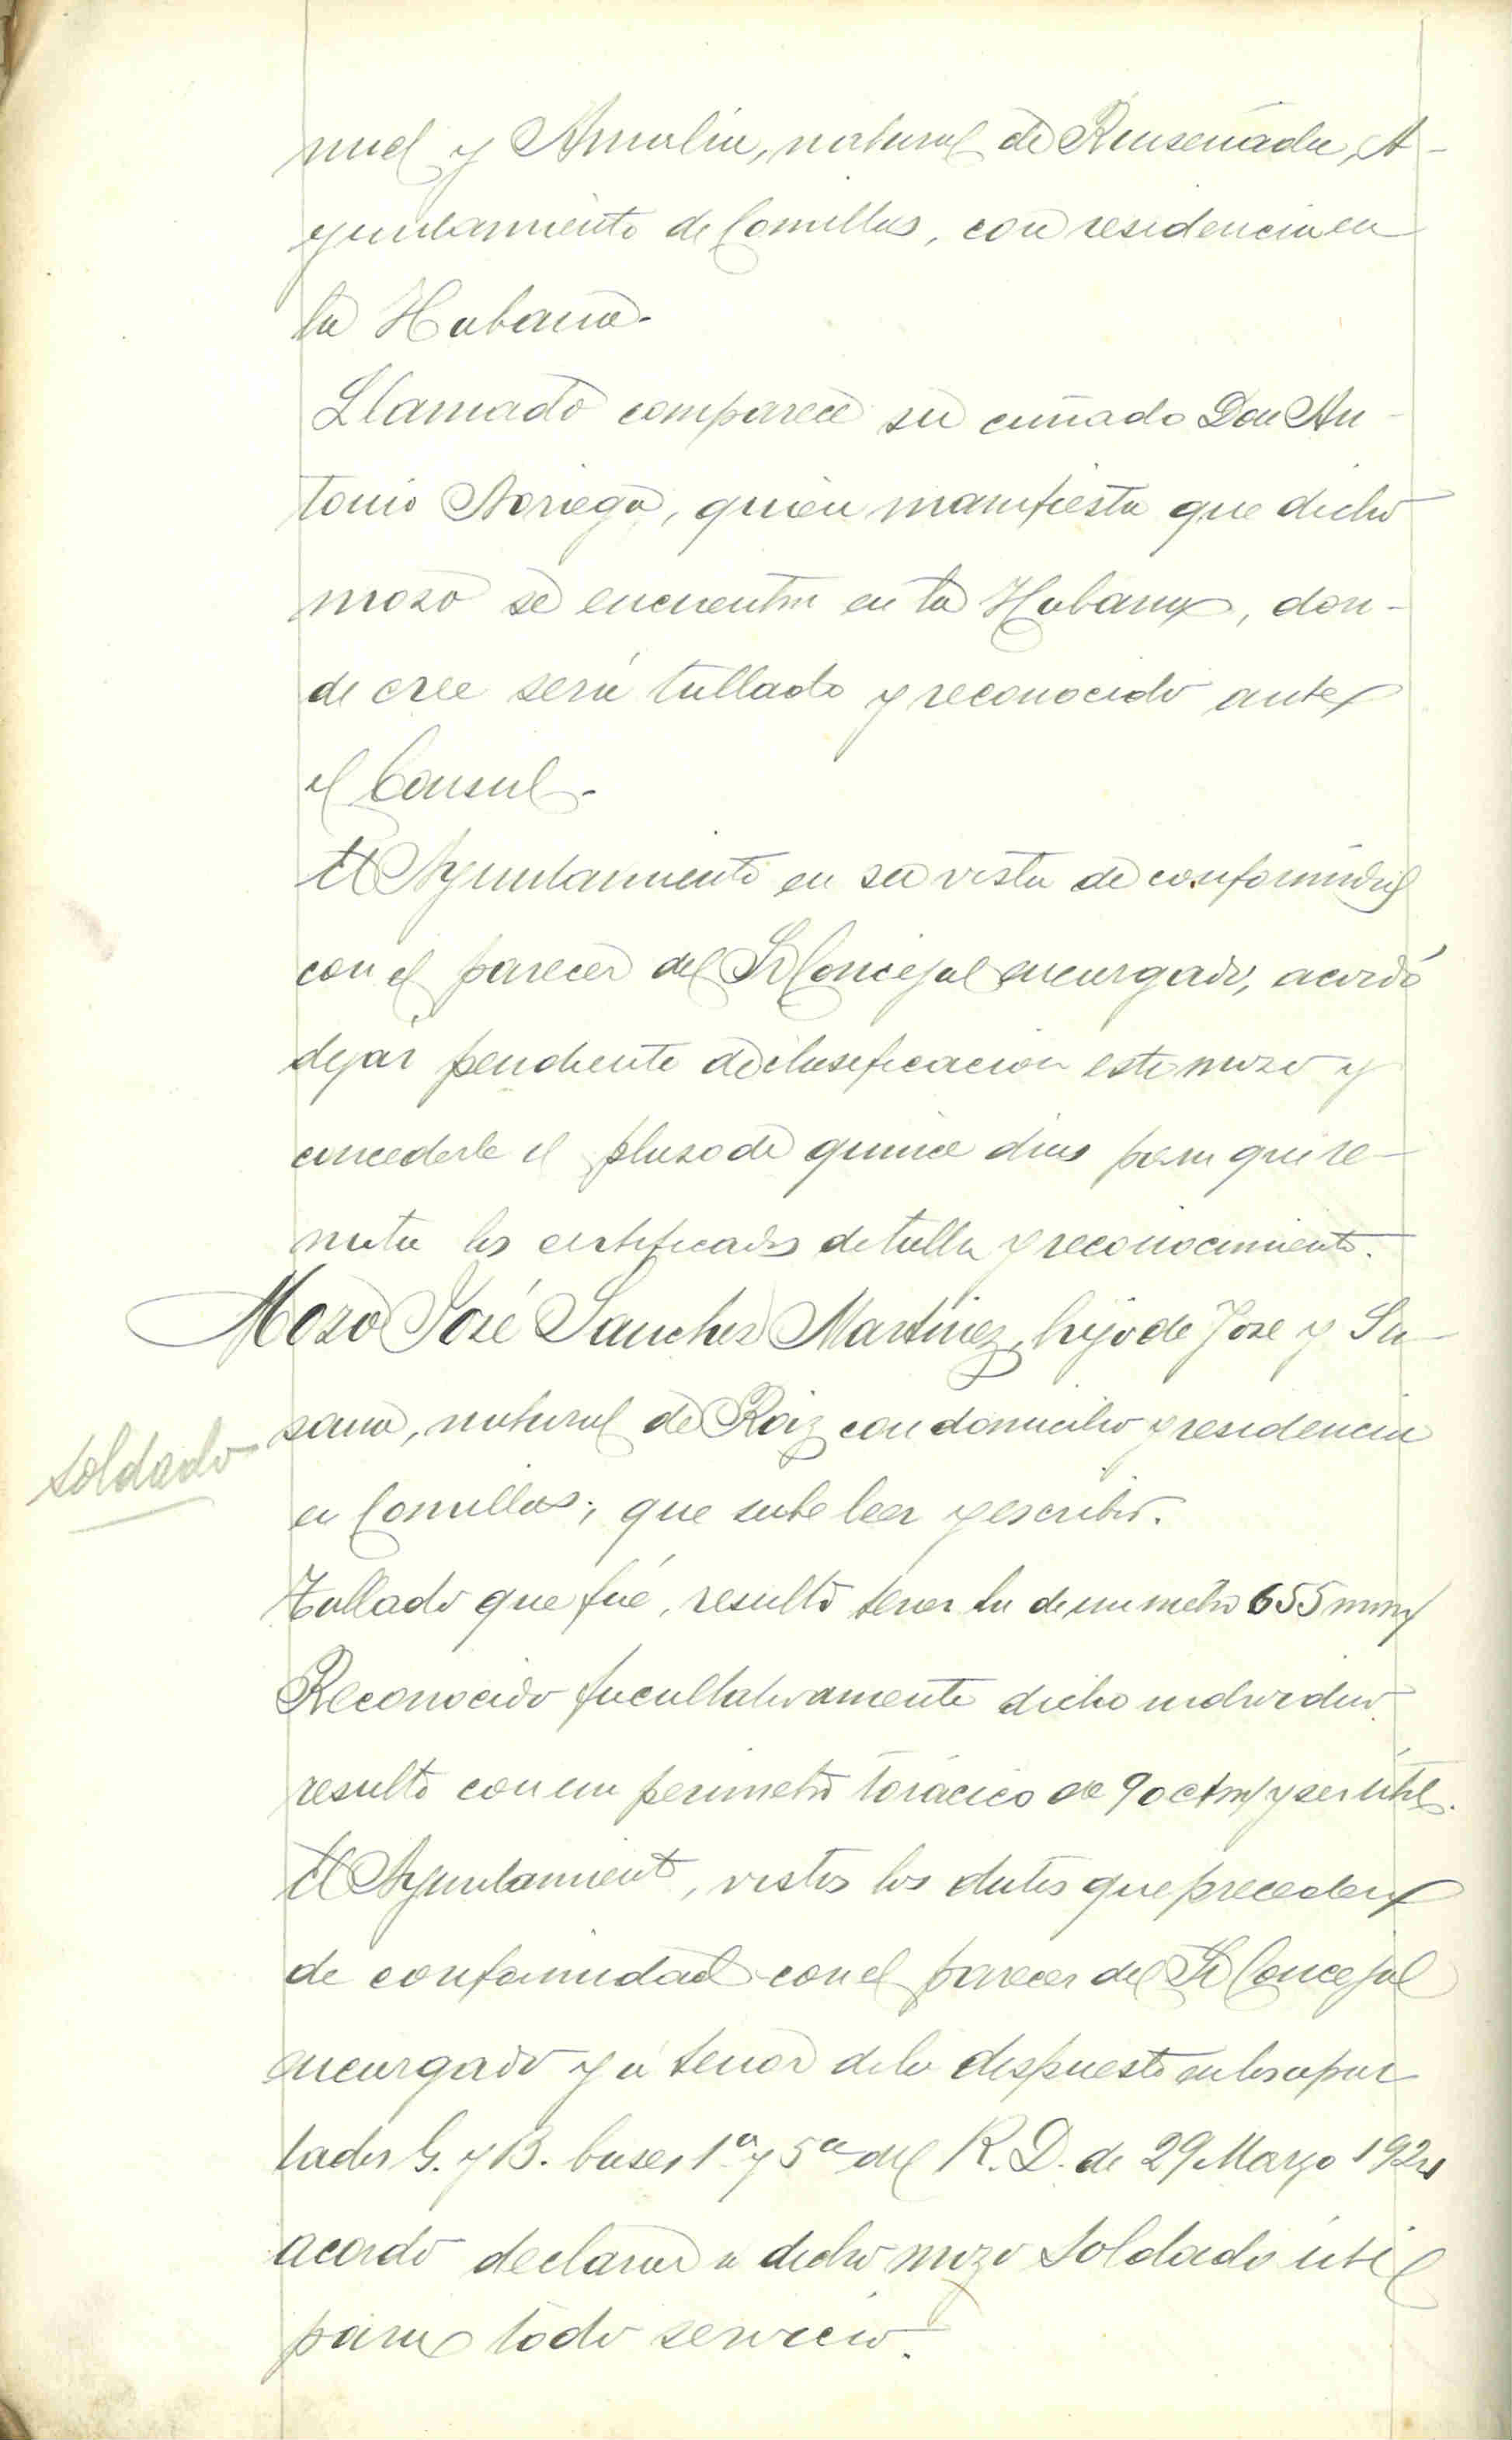 nuel y Amalia, natural de Ruiseñada, A-
yuntamiento de Comillas, con residencia en
la Habana.
Llamado comparece su cuñado Don An-
tonio Noriega, quien manifiesta que dicho
mozo se encuentra en la Habana, don-
de cree será tallado y reconocido ante
el Consul.
El Ayuntamiento en su vista de conformidad
con el parecer del Sr Concejal encargado, acordó
dejar pendiente de clasificacion este mozo y
concederle el plazo de quince dias para que re-
mita los certificados de talla y reconocimiento.
Mozo José Sanchez Martinez, hijo de Jose y Su-
sana, natural de Roiz con domicilio y residencia
en Comillas; que sabe leer y escribir.
soldado
Tallado que fué, resultó tener la de un metro 655 mm
Reconocido facultativamente dicho individuo
resultó con un perimetro torácico de 90 ctm/ y ser útil.
El Ayuntamiento, vistos los datos que preceden
de conformidad con el parecer del Sr Concejal
encargado y a tenor de lo dispuesto en los apar
tados G. y B. bases 1ª y 5ª del R. D. de 29 Marzo 1924
acordó declarar a dicho mozo Soldado útil
para todo servicio.